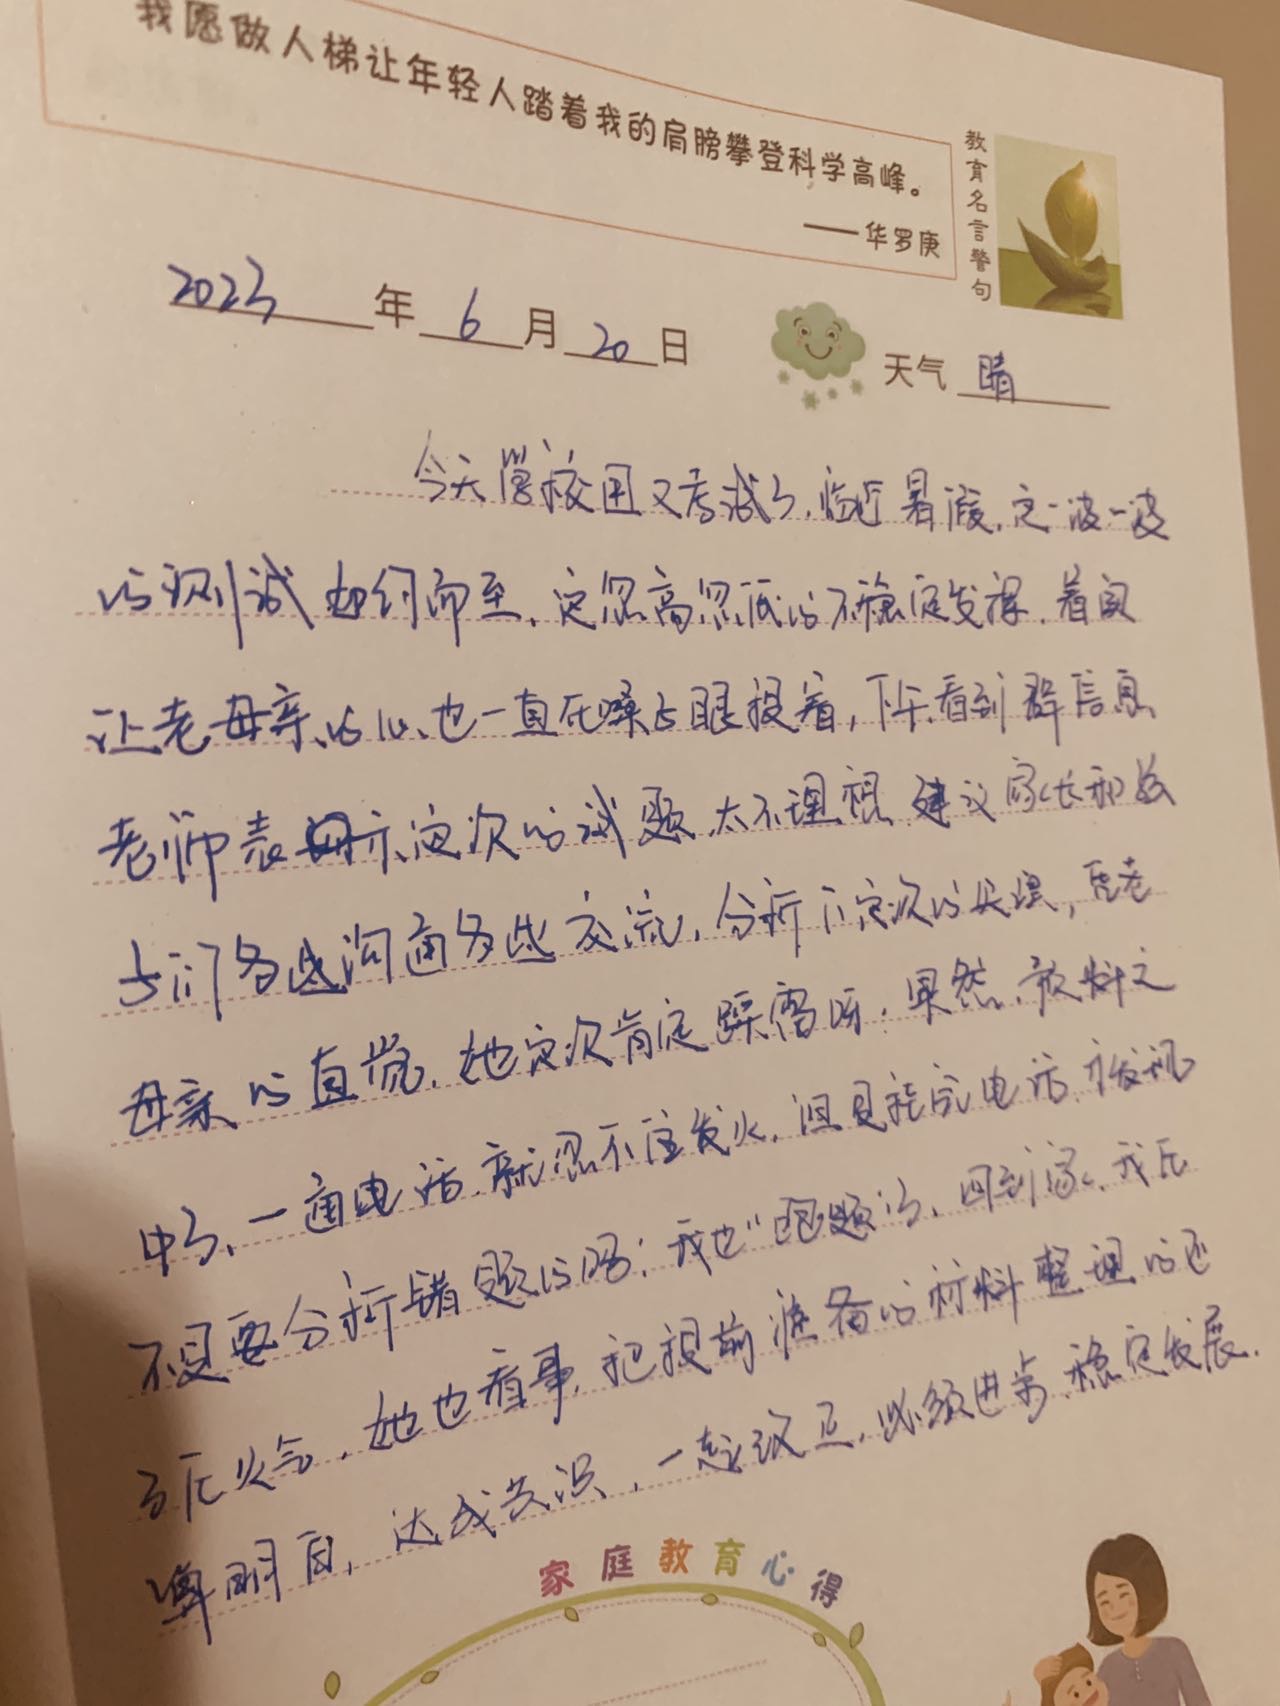 我愿做人梯让年轻人踏着我的肩膀攀登科学高峰。
——华罗庚
教育名言警句
2023年6月20日
天气 晴
今天学校因又考试了，临近暑假，这一波一波
的测试如约而至，这忽高忽低的不稳定发挥，着实
让老母亲的心也一直在嗓子眼提着，下午看到群信息
老师表示这次的试题太不理想，建议家长和孩
子们多些沟通多些交流，分析下这次的失误，凭老
母亲的直觉，她这次肯定踩雷呀，果然，预料之
中了，一通电话就忍不住发火，但是挂完电话才发现
不是要分析错题的吗？我也"跑题"了，回到家，我压
了压火气，她也看事，把提前准备的材料整理的还
算明白，达成共识，一起改正，必须进步，稳定发展。
家庭教育心得